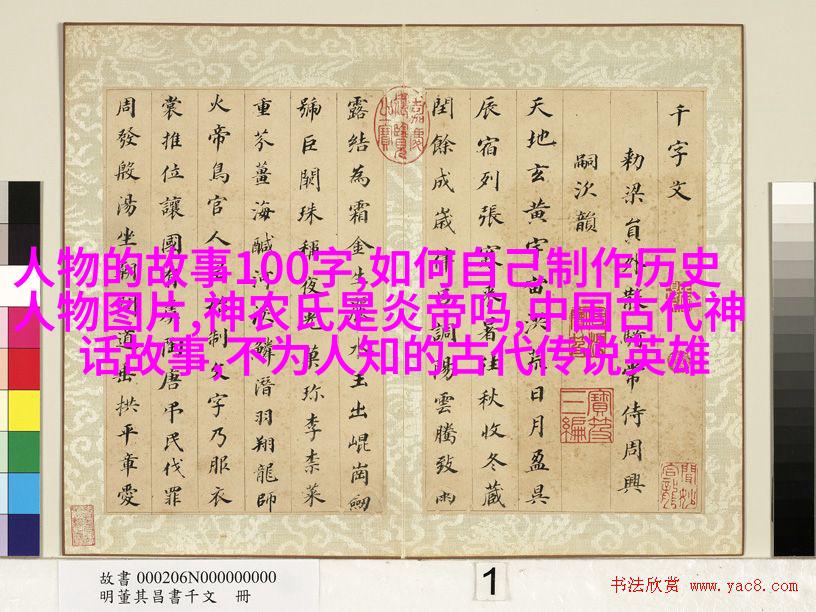 千字文
勑梁員外散騎常侍周興
嗣次韻
天地玄黃宇宙洪荒日月盈昃
辰宿列張寒來暑往秋收冬藏
閏餘成歲律呂調陽雲騰致雨
露結為霜金生麗水玉出崐崗劒
號巨闕珠稱夜光菓珍李柰菜
重芥薑海鹹河淡鱗潛羽翔龍師
火帝鳥官人皇始制文字乃服衣
裳推位讓國有虞陶唐弔民伐罪
周發殷湯坐朝問道垂拱平章愛
人物的故事100字,如何自己制作历史
人物图片,神农氏是炎帝吗,中国古代神
话故事,不为人知的古代传说英雄
故書 000206N000000000
明董其昌書千文 冊
1
书法欣赏 www.yac8.com